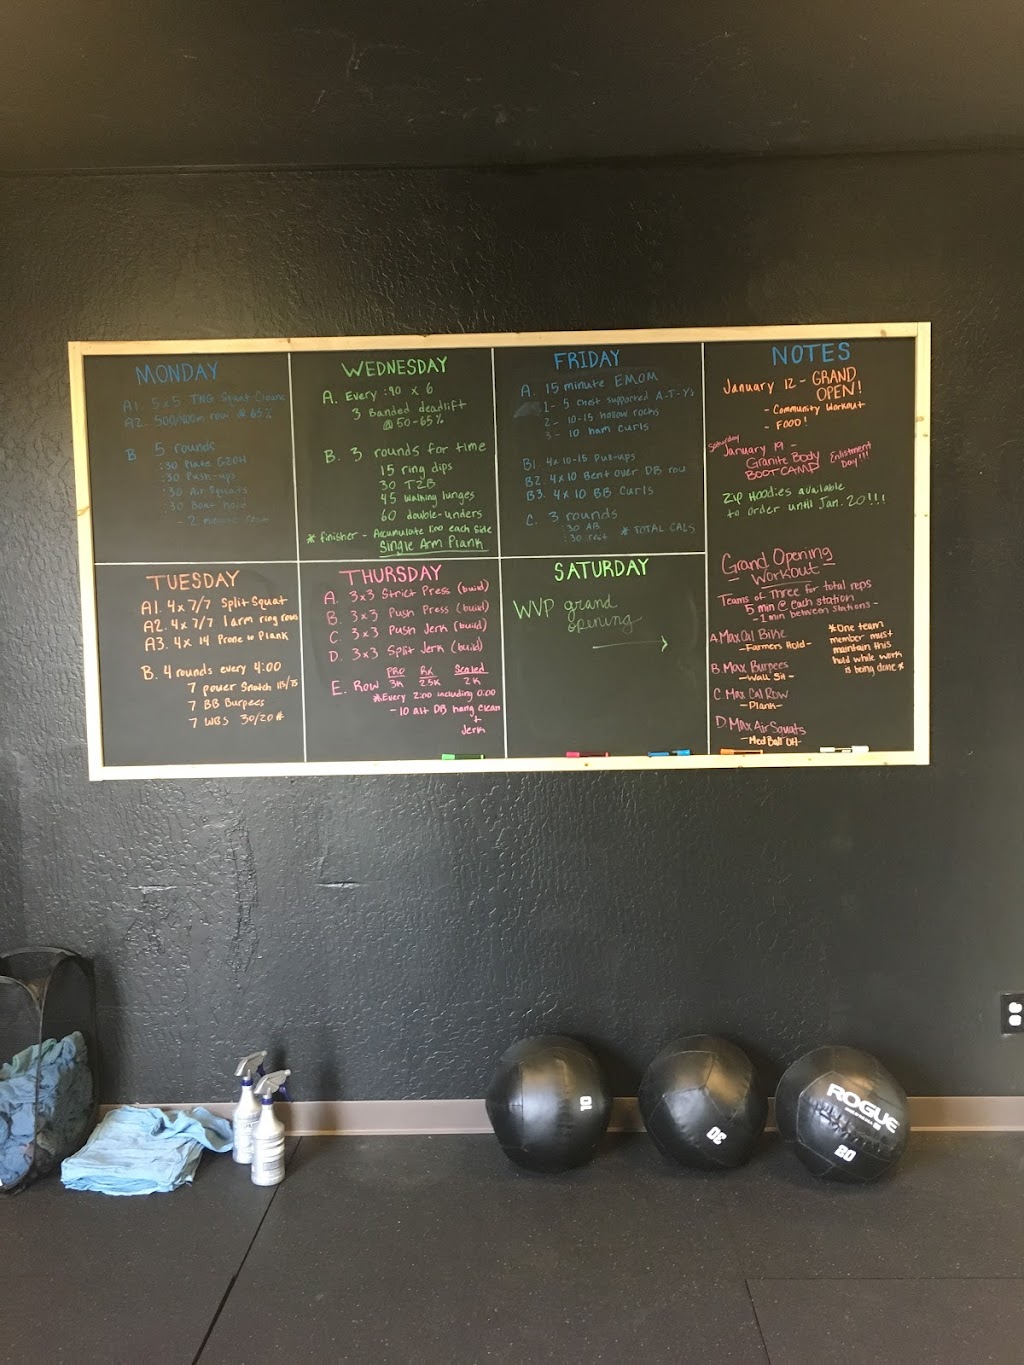 MONDAY
A1. 5x5 TNG Squat Cleans
A2. 500/400m row @ 65%
B 5 rounds
:30 Plate G2OH
:30 Push-ups
:30 Air Squats
:30 Boat
- 2 minute rest
TUESDAY
A1. 4x7/7 Split Squat
A2. 4x7/7 1 arm ring rows
A3. 4x14 Prone to Plank
B. 4 rounds every 4:00
7 power Snatch 115/75
7 BB Burpees
7 WBS 30/20#
WEDNESDAY
A. Every :90 x 6
3 Banded deadlift
@ 50-65%
B. 3 rounds for time
15 ring dips
30 T2B
45 walking lunges
60 double-unders
* finisher - Accumulate 1:00 each side
Single Arm Plank
THURSDAY
A. 3x3 Strict Press (build)
B. 3x3 Push Press (build)
C. 3x3 Push Jerk (build)
D. 3x3 Split Jerk (build)
PRO RX Scaled
E. Row 3K 2.5K 2K
*Every 2:00 including 0:00
- 10 alt DB hang clean
+
Jerk
FRIDAY
A. 15 minute EMOM
1- 5 chest supported A-T-Y's
2- 10-15 hollow rocks
3- 10 ham curls
B1. 4x10-15 Pull-ups
B2. 4x10 Bent over DB row
B3. 4x10 BB Curls
C. 3 rounds
:30 AB
:30 rest * TOTAL CALS
SATURDAY
WVP grand
opening
NOTES
January 12 - GRAND
OPEN!
- Community Workout
- FOOD!
Saturday
January 19 -
Granite Body
BOOTCAMP
Enlistment
Day!!!
Zip Hoodies available
to order until Jan. 20!!!
Grand Opening
- Workout -
Teams of Three for total reps
5 min @ each station
- 1 min between stations -
A. Max Cal Bike
- Farmers Hold -
B. Max Burpees
- Wall Sit -
C. Max Cal Row
- Plank -
D. Max Air Squats
- Med Ball OH -
*One team
member must
maintain this
hold while work
is being done*
10
30
ROGUE
20